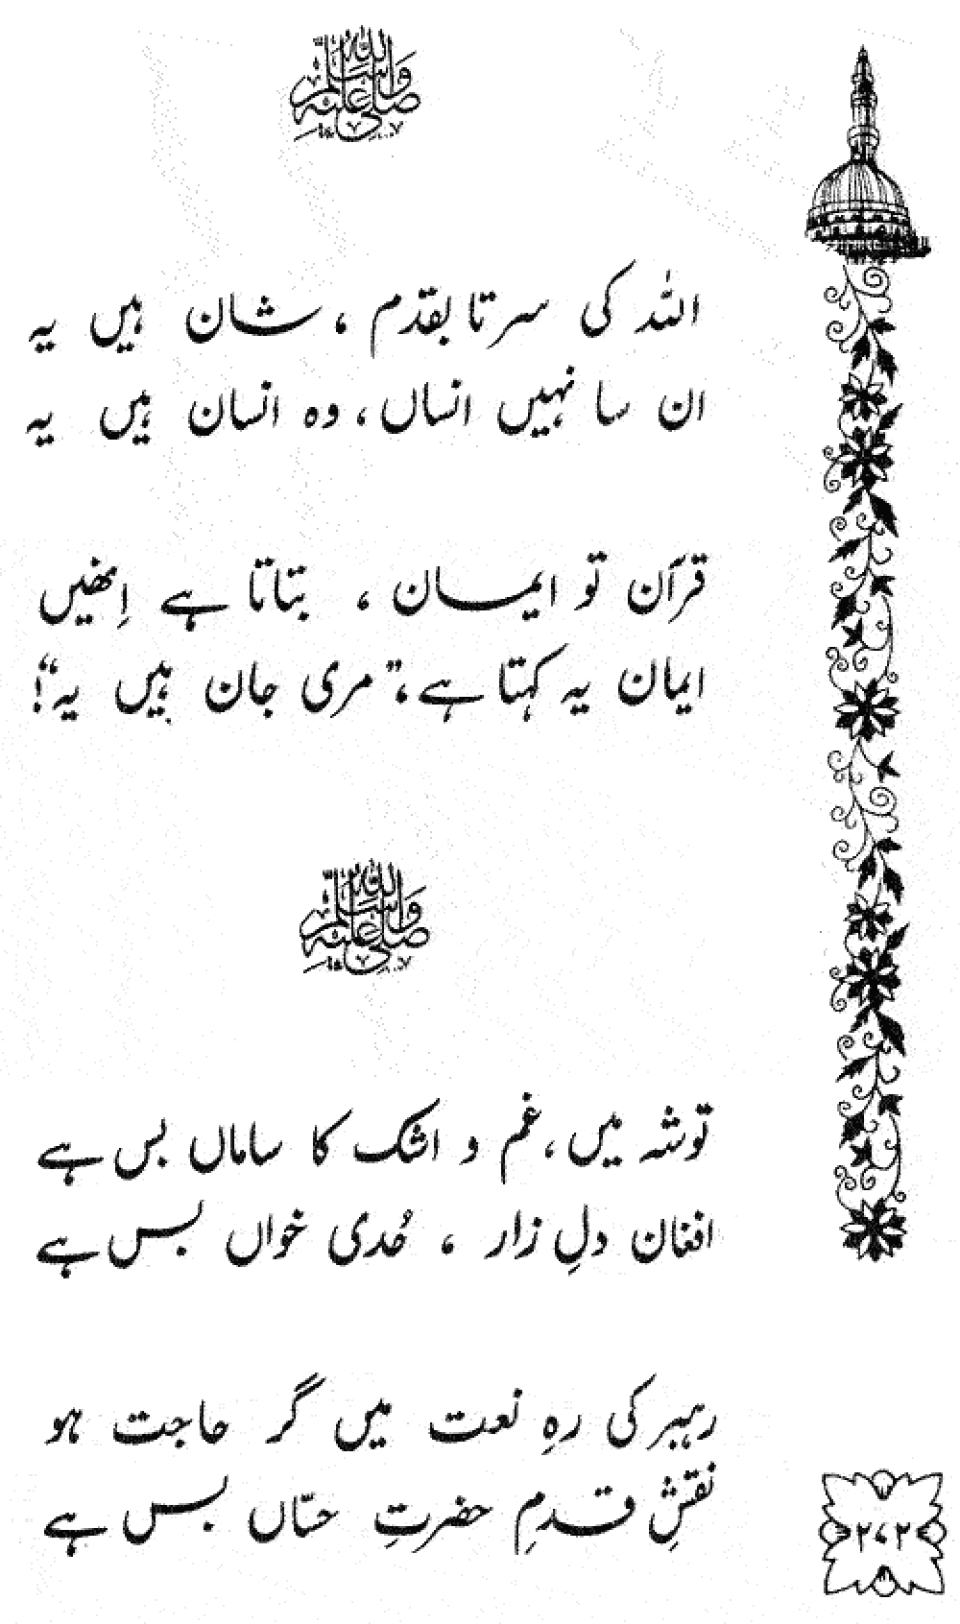 صلى الله عليه وسلم
اللہ کی سر تا بقدم ، شان ہیں یہ
ان سا نہیں انساں، وہ انسان ہیں یہ
قرآن تو ایمان ، بتاتا ہے اِنھیں
ایمان یہ کہتا ہے، "مری جان ہیں یہ"!
صلى الله عليه وسلم
توشہ میں، غم و اشک کا ساماں بس ہے
افغان دلِ زار ، حُدی خواں بس ہے
رہبر کی رہِ نعت میں گر حاجت ہو
نقشِ قدمِ حضرتِ حسّاں بس ہے